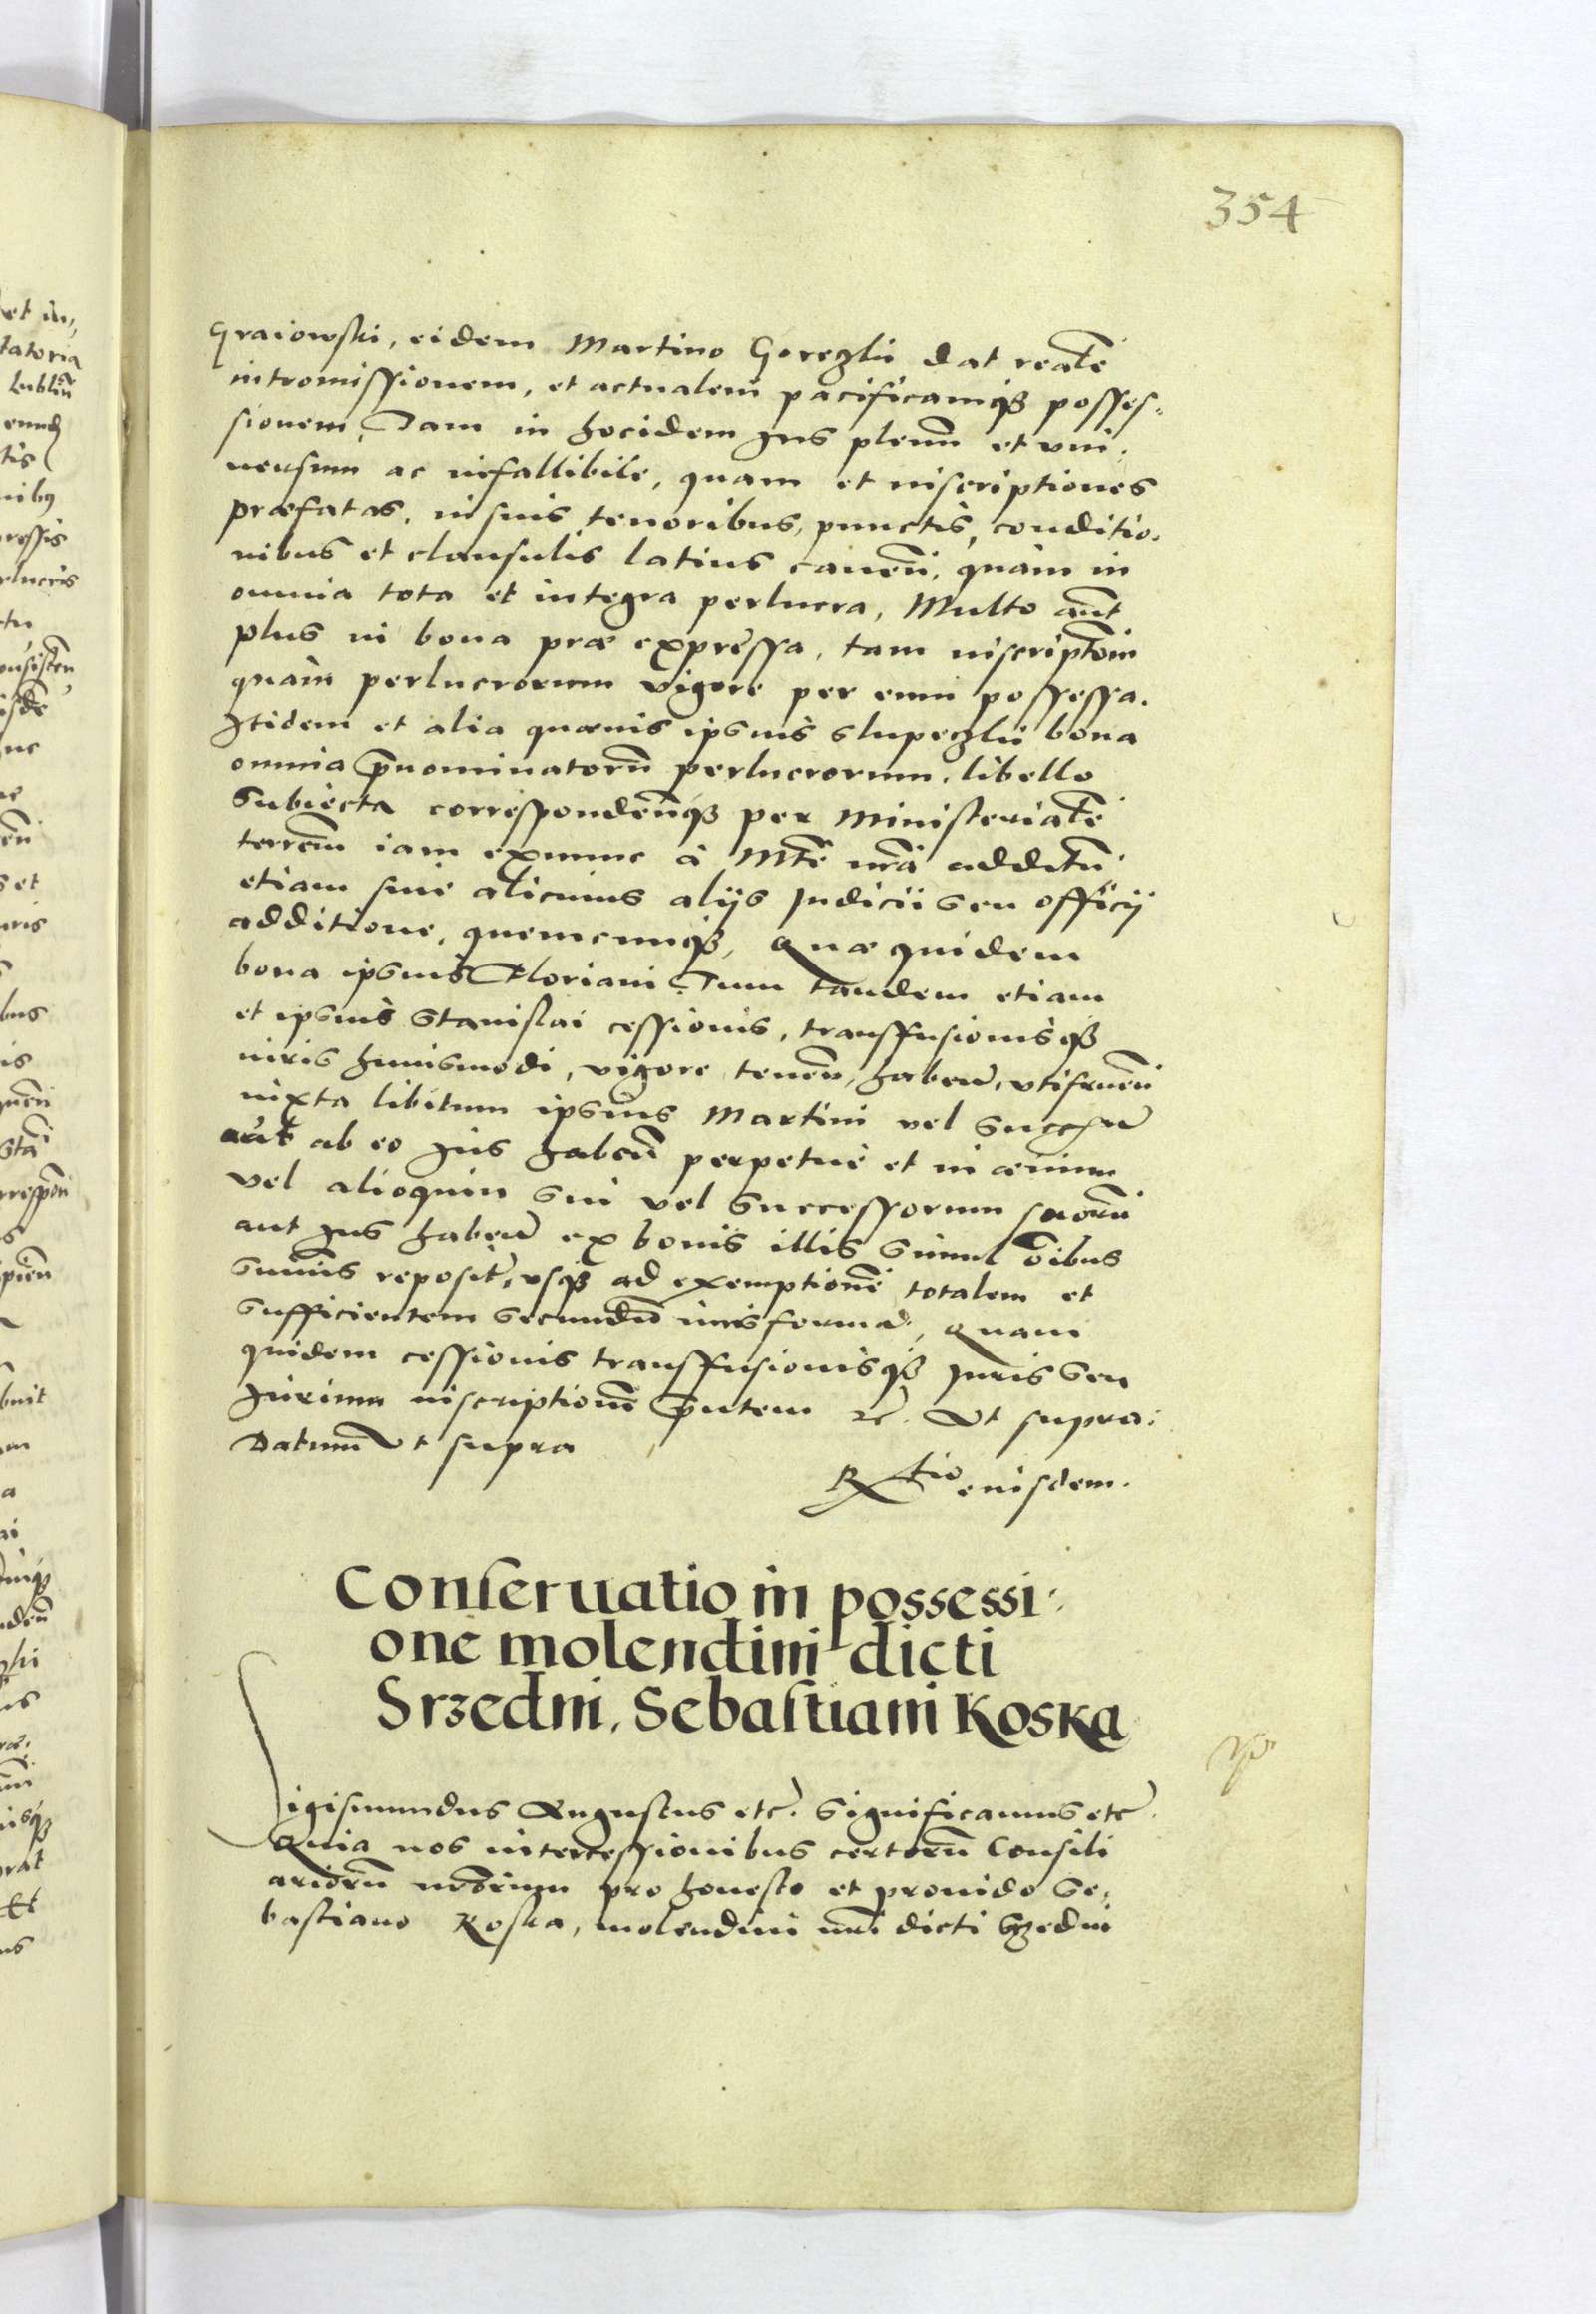 354
Graiowski, eidem Martino Goreczki dat realē
intromissionem, et actualem pacificamq₃ posses-
sionem, Tam in hocidem Jus plenū et vni-
uersum ac infallibile, quam et inscriptiones
præfatas, in suis tenoribus, punctis, conditio-
nibus et clausulis latius cauen̄, quàm in
omnia tota et integra perlucra, Multo aūt
plus in bona præ expressa, tam inscriptōm
quàm perlucrorum vigore per eum possessa.
Itidem et alia quæuis ipsius Slupeczki bona
omnia p̄nominatorū perlucrorum, libello
subiecta correspondēnq₃ per Ministerialē
terrēm iam exnunc à Mtē nrā additū
etiam siue alicuius alijs Judicii seu officij
additione, quemcunq₃, Quæ quidem
bona ipsius Floriani Tum tandem etiam
et ipsius Stanislai cessionis, transffusionisq₃
iuris huiusmodi, vigore tenēn, haben̄, vtifruēn
iuxta libitum ipsius Martini vel success
aut ab eo Jus habēn perpetuè et in æuum
vel alioquin sui vel successorum suorū
aut Jus haben̄ ex bonis illis simul ōibus
summis reposit, vsq₃ ad exemptionē totalem et
sufficientem secundū iuris formā, Quam
quidem cessionis transffusionisq₃ Juris seu
Jurium inscriptionū p̄ntem etc. Vt supra:
Datum Vt supra
Rtio eiusdem.
Conseruatio in possessi-
one molendini dicti
Srzedni, Sebastiani Koska
Sigismundus Augustus etc. Significamus etc.
Quia nos intercessionibus certorū Consili
ariorū nrōrum pro honesto et prouido Se-
bastiano Koska, molendini nrī dicti Srzedni